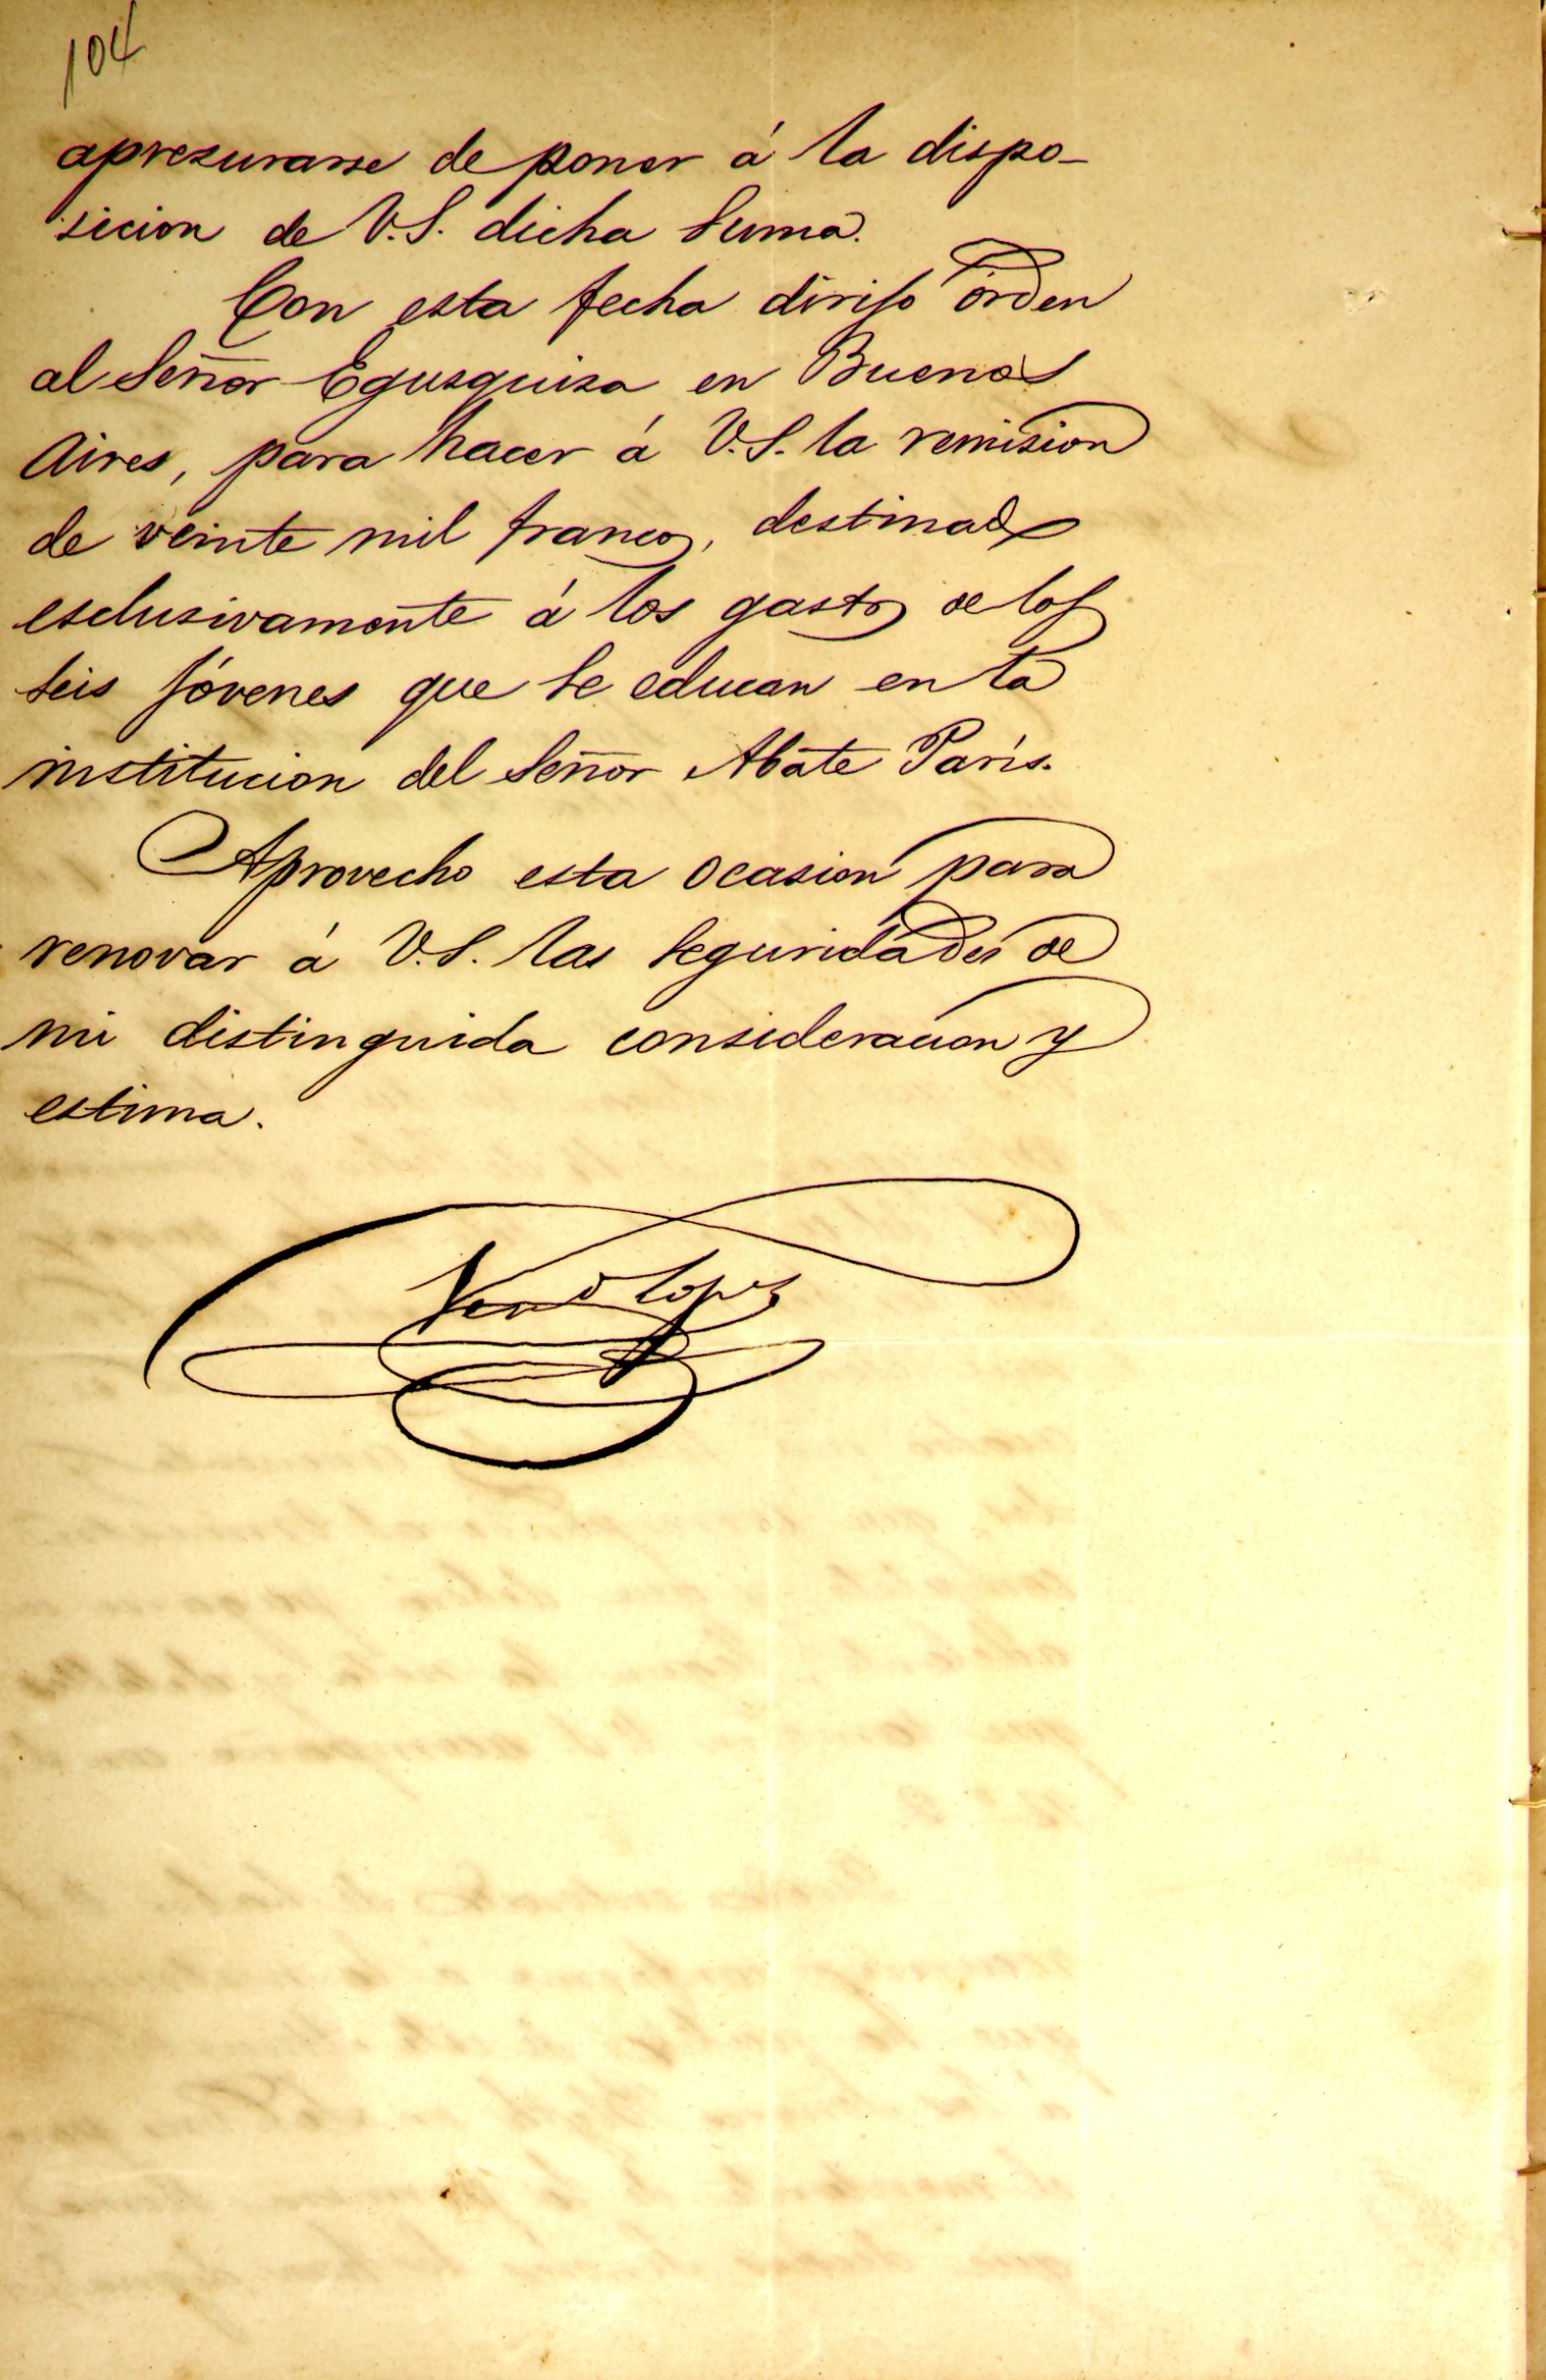 104
apresurarse de poner á la dispo-
sicion de V.S. dicha suma.
Con esta fecha dirijo órden
al Señor Egusquiza en Buenos
Aires, para hacer á V.S. la remision
de veinte mil francos, destinados
esclusivamente á los gastos de los
seis jóvenes que se educan en la
institucion del Señor Abate Paris.
Aprovecho esta ocasion para
renovar á V.S. las seguridades de
mi distinguida consideracion y
estima.
Vendo Lopez